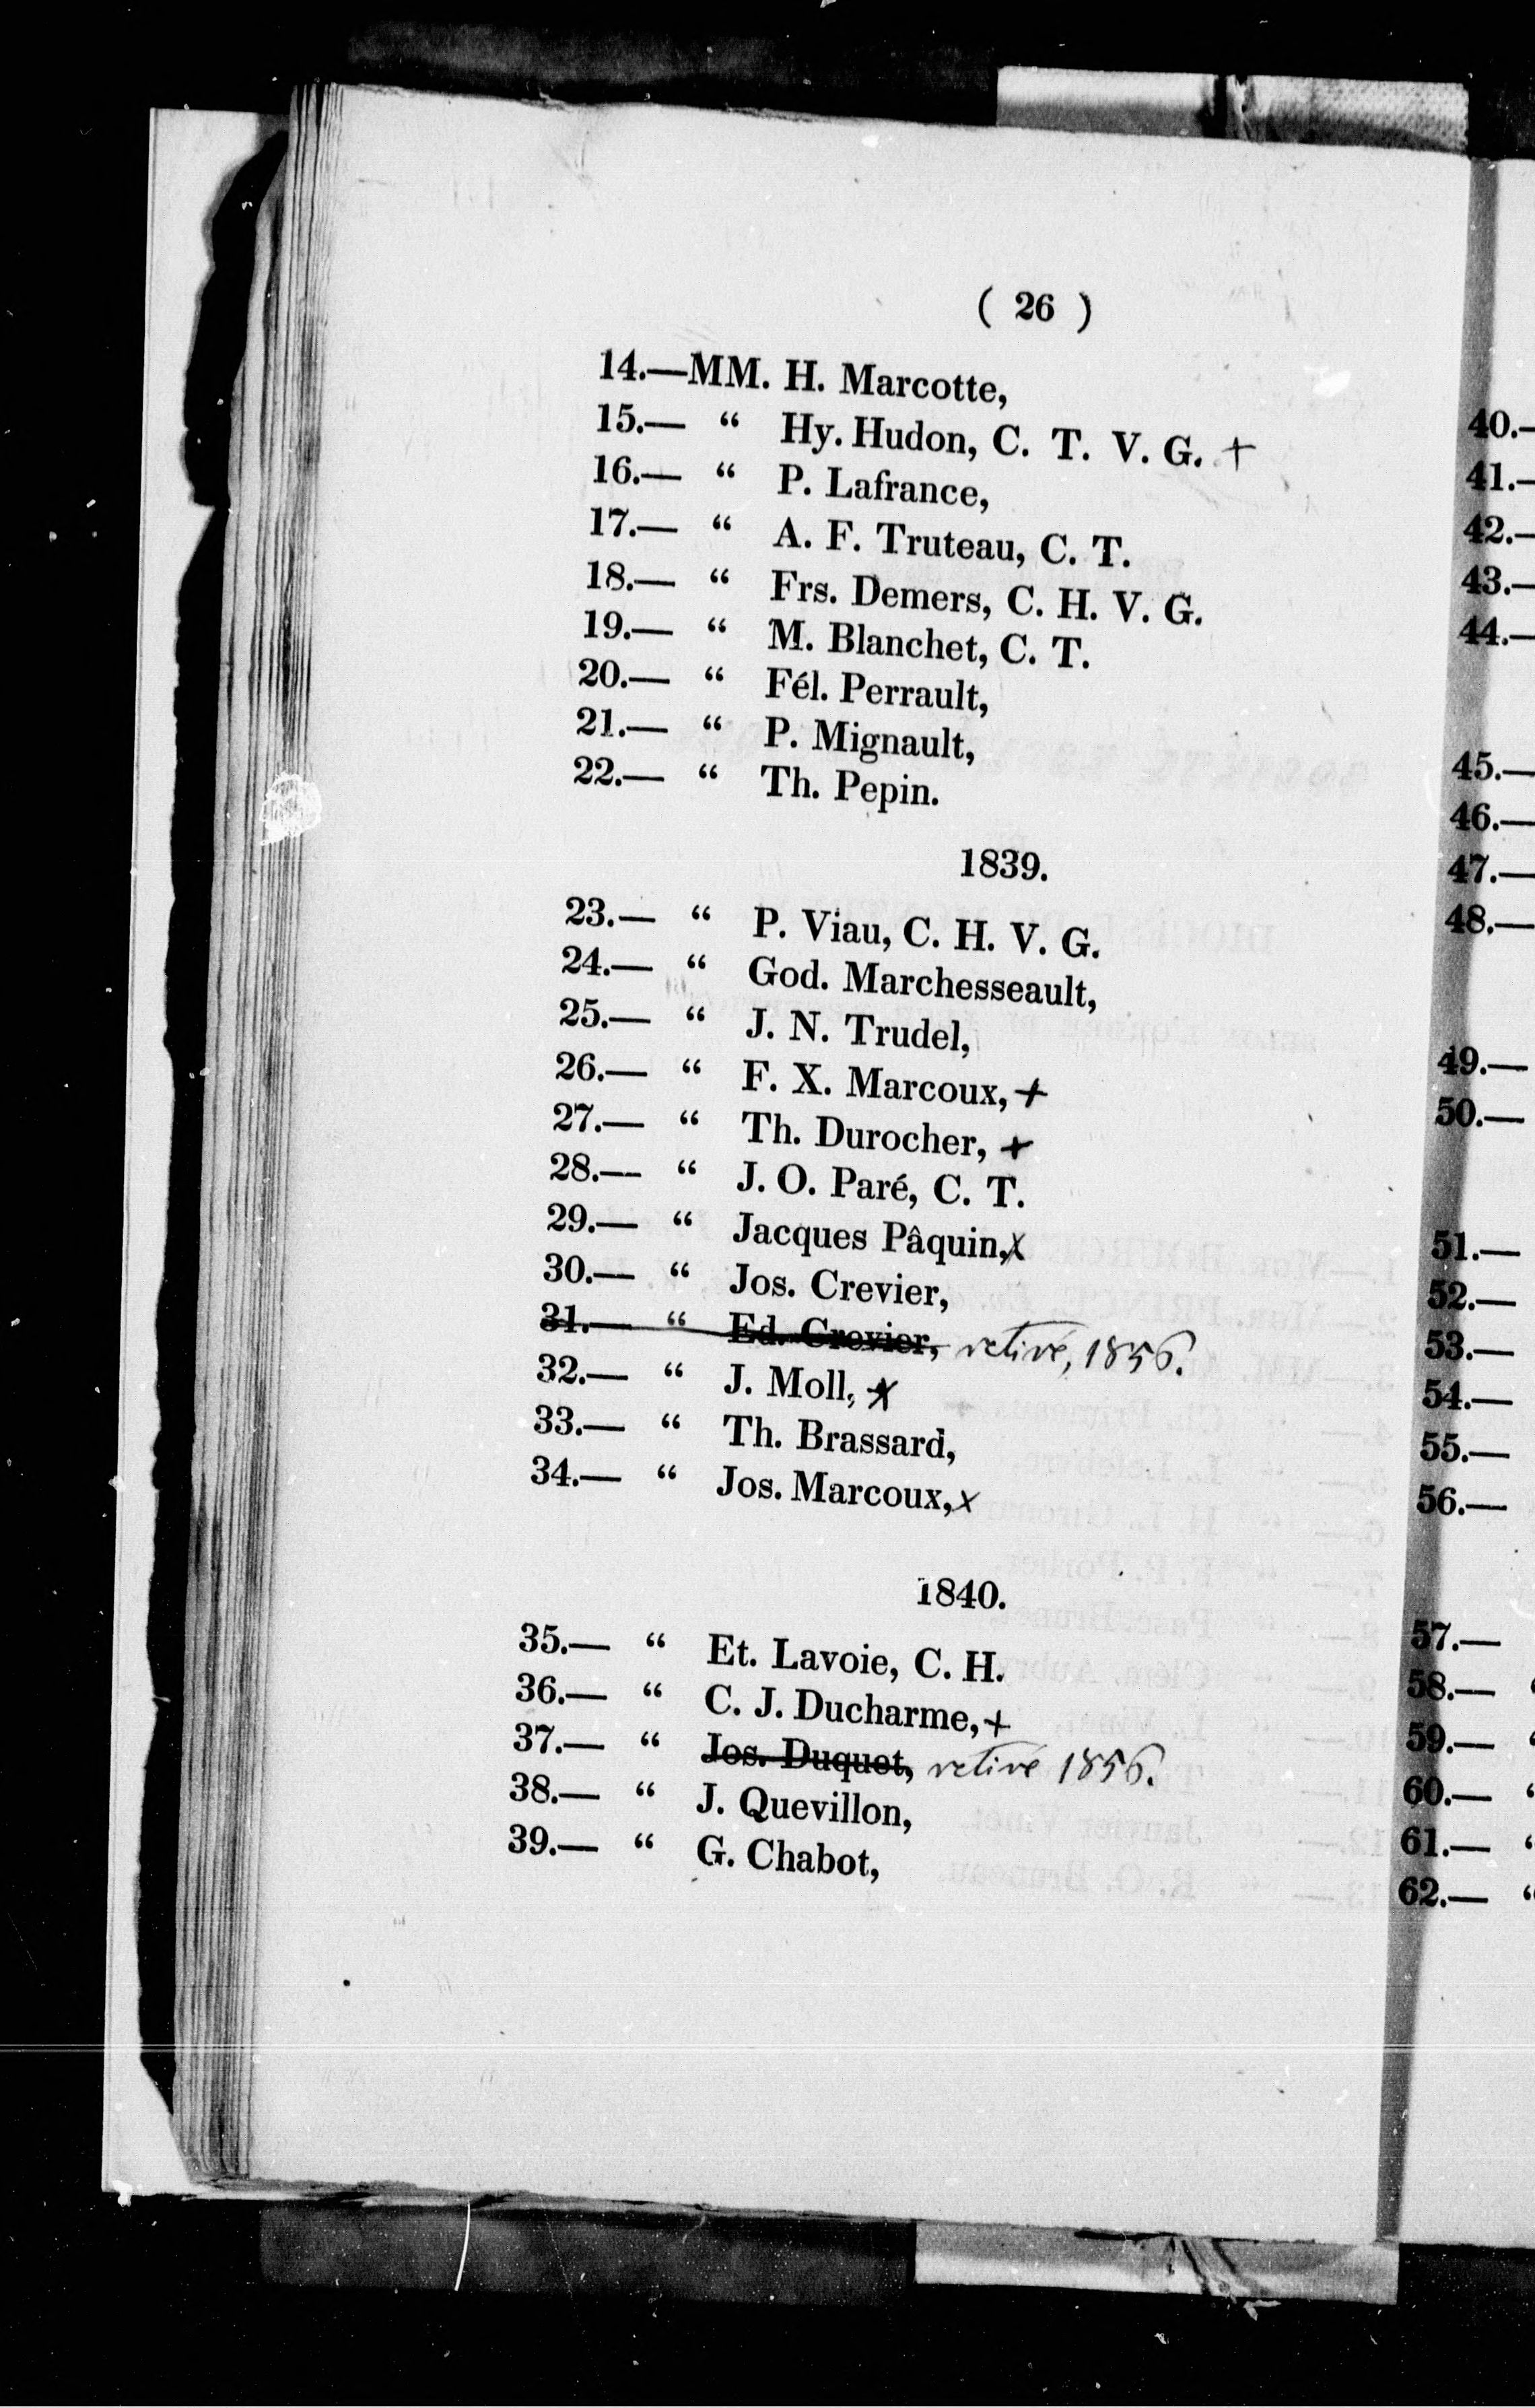 ( 26 )
14.—MM. H. Marcotte,
15.— “ Hy. Hudon, C. T. V. G. +
16.— “ P. Lafrance,
17.— “ A. F. Truteau, C. T.
18.— “ Frs. Demers, C. H. V. G.
19.— “ M. Blanchet, C. T.
20.— “ Fél. Perrault,
21.— “ P. Mignault,
22.— “ Th. Pepin.
1839.
23.— “ P. Viau, C. H. V. G.
24.— “ God. Marchesseault,
25.— “ J. N. Trudel,
26.— “ F. X. Marcoux, +
27.— “ Th. Durocher, +
28.— “ J. O. Paré, C. T.
29.— “ Jacques Pâquin, x
30.— “ Jos. Crevier,
31.— “ Ed. Crevier, retiré, 1856.
32.— “ J. Moll, x
33.— “ Th. Brassard,
34.— “ Jos. Marcoux, x
1840.
35.— “ Et. Lavoie, C. H.
36.— “ C. J. Ducharme, +
37.— “ Jos. Duquet, retiré 1856.
38.— “ J. Quevillon,
39.— “ G. Chabot,
40.—
41.—
42.—
43.—
44.—
45.—
46.—
47.—
48.—
49.—
50.—
51.—
52.—
53.—
54.—
55.—
56.—
57.—
58.— “
59.— “
60.— “
61.— “
62.— “